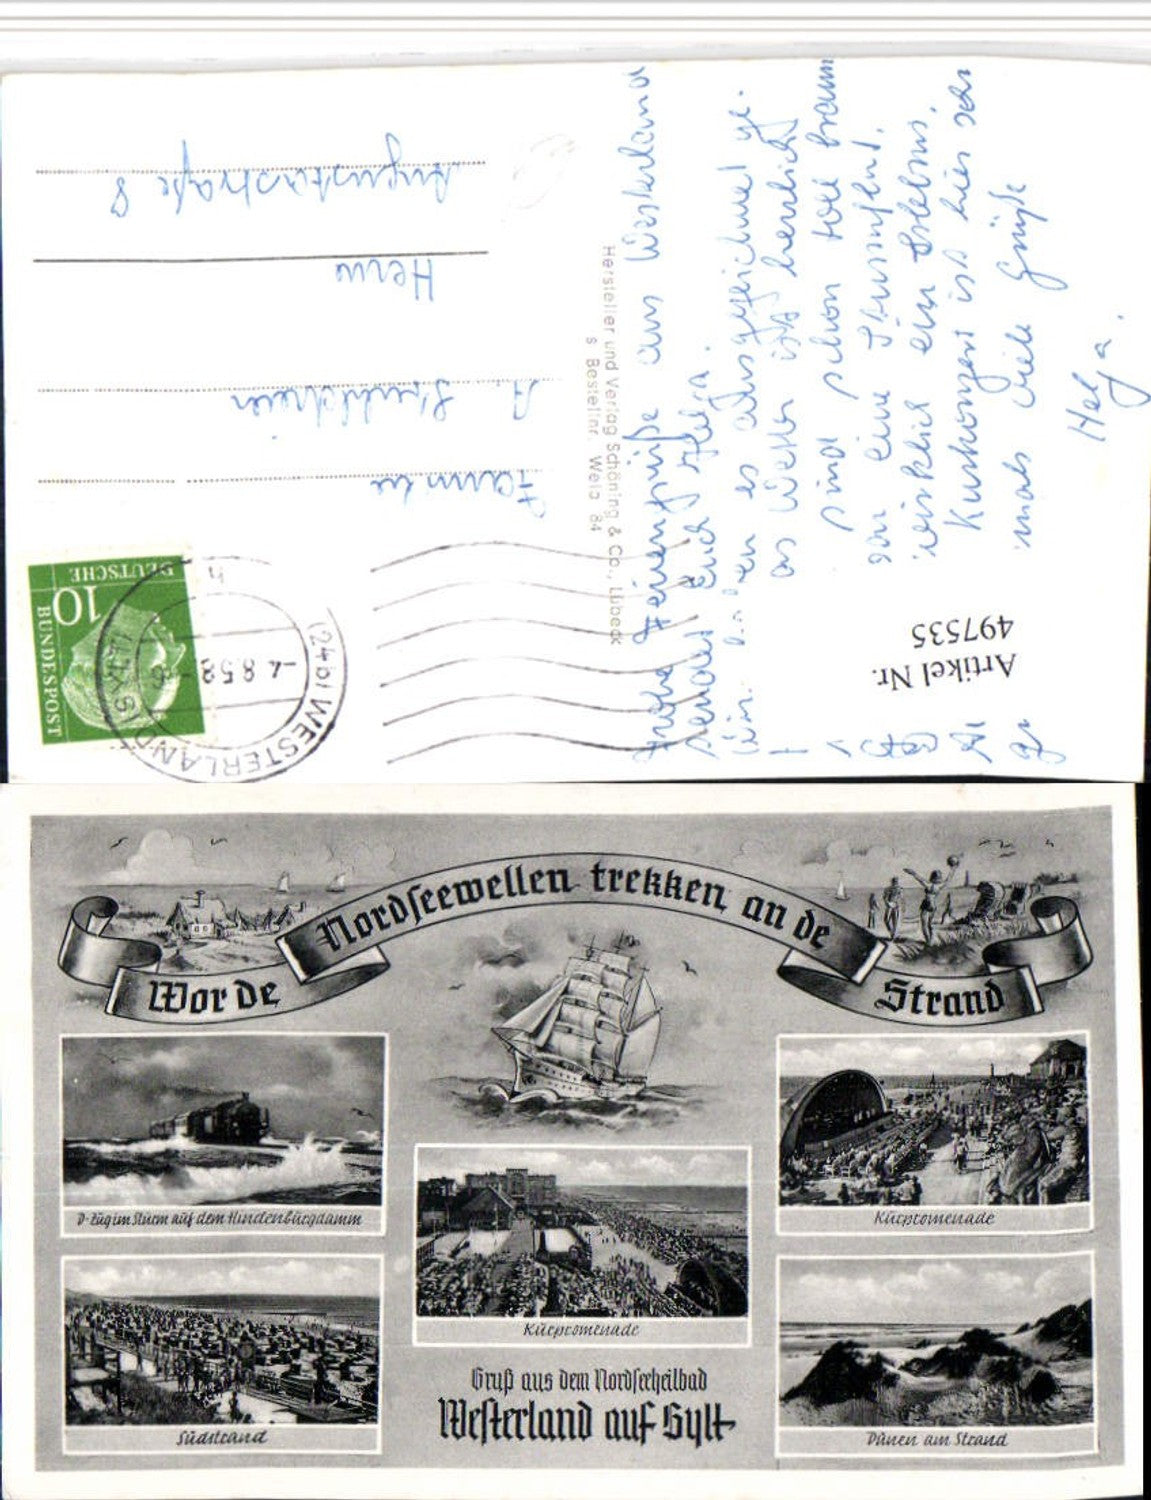 Frohe Feriengrüße aus Westerland
sendet Euch Helga.
Wir haben es ausgezeichnet ge-
das Wetter ist herrlich
sind schon toll braun
war eine Sturmflut.
wirklich ein Erlebnis.
Kurkonzert ist hier sehr
mals viele Grüße
Helga.
Hersteller und Verlag Schöning & Co., Lübeck
s Bestellnr. Welp 84
Familie
A.
Herne
Augustastraße 8
DEUTSCHE
BUNDESPOST
10
(24b) WESTERLAND (SYLT)
-4.8.58
Artikel Nr.
497535
Wor de Nordseewellen trekken an de Strand
D-Zug im Sturm auf dem Hindenburgdamm
Kurpromenade
Kurpromenade
Südstrand
Dünen am Strand
Gruß aus dem Nordseeheilbad
Westerland auf Sylt